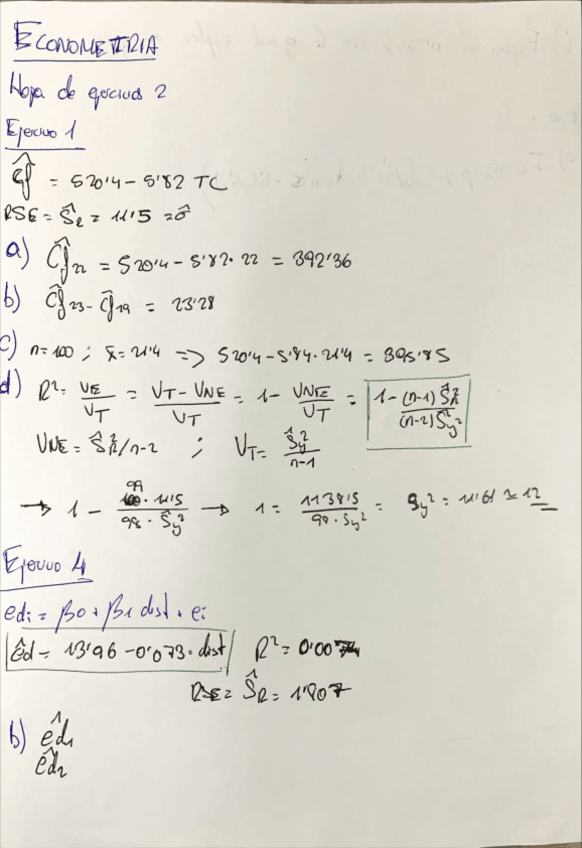 ECONOMETRIA
Hoja de ejercicios 2
Ejercicio 1
Ĉf = 520'4 - 5'82 TC
RSE = Ŝ_R = 11'5 = σ̂
a) Ĉf₂₂ = 520'4 - 5'82 · 22 = 392'36
b) Ĉf₂₃ - Ĉf₁₉ = 23'28
c) n=100 ; x̄ = 21'4 => 520'4 - 5'84 · 21'4 = 395'85
d) R² = VE/VT = (VT - VNE)/VT = 1 - VNE/VT = 1 - (n-1) Ŝ_R²/(n-2) Ŝ_y²
VNE = Ŝ_R²/n-2 ; VT = Ŝ_y²/n-1
→ 1 - 99 · 11'5/98 · Ŝ_y² → 1 = 1138'5/98 · S_y² = S_y² = 11'61 ≃ 12
Ejercicio 4
edi = β0 + β1 dist + ei
êd = 13'96 - 0'073 · dist R² = 0'007
RSE = Ŝ_R = 1'807
b) êd₁
êd₂